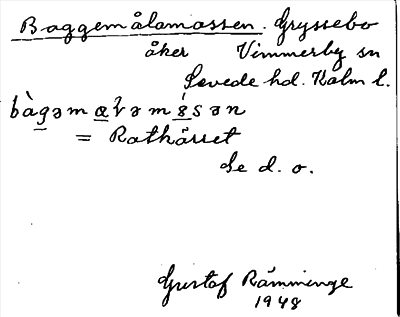 Baggemålamossen. Gryssebo
åker Vimmerby sn
Sevede hd. Kalm l.
= Rothåsset
Se d. o.
Gustaf Rämminge
1948